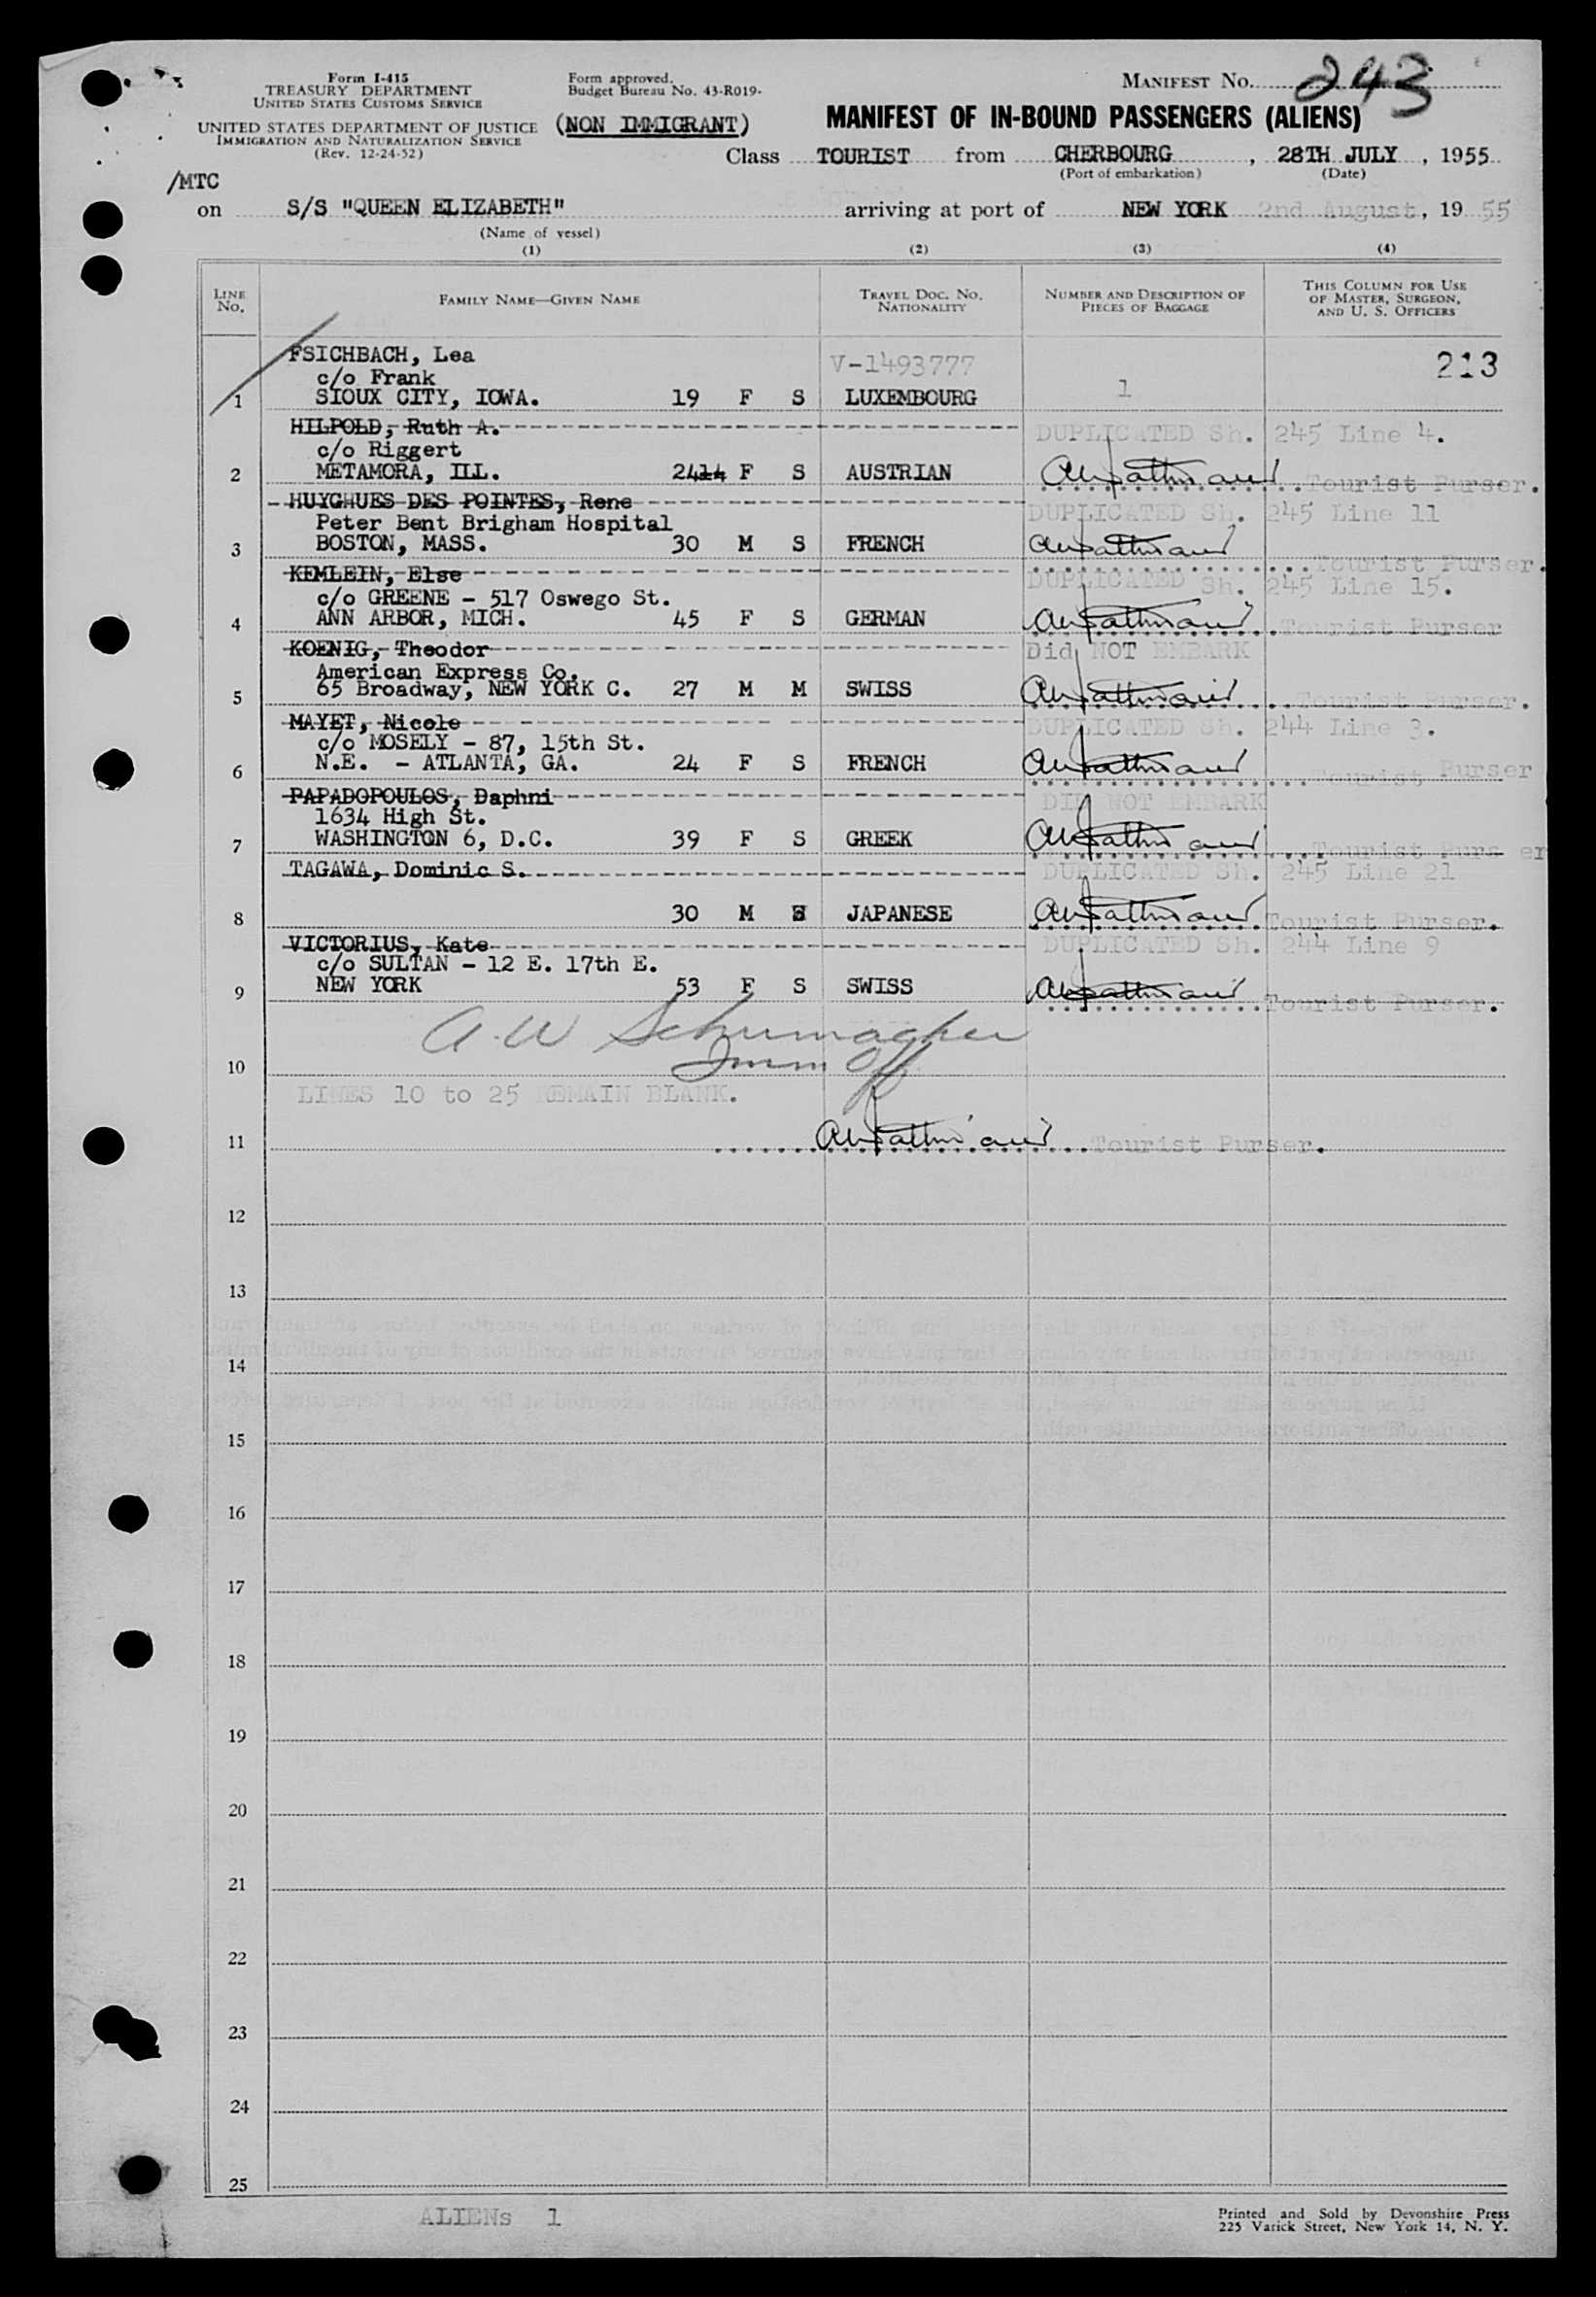 Form I-415
TREASURY DEPARTMENT
UNITED STATES CUSTOMS SERVICE
UNITED STATES DEPARTMENT OF JUSTICE
IMMIGRATION AND NATURALIZATION SERVICE
(Rev. 12-24-52)
Form approved.
Budget Bureau No. 43-R019-
(NON IMMIGRANT)
MANIFEST NO. 243
MANIFEST OF IN-BOUND PASSENGERS (ALIENS)
Class TOURIST from CHERBOURG, 28TH JULY, 1955
(Port of embarkation) (Date)
/MTC
on S/S "QUEEN ELIZABETH" arriving at port of NEW YORK 2nd August, 19 55
(Name of vessel)
(1) (2) (3) (4)
LINE NO. FAMILY NAME—GIVEN NAME TRAVEL DOC. NO. NATIONALITY NUMBER AND DESCRIPTION OF PIECES OF BAGGAGE THIS COLUMN FOR USE OF MASTER, SURGEON, AND U. S. OFFICERS
FSICHBACH, Lea V-1493777 213
c/o Frank
1 SIOUX CITY, IOWA. 19 F S LUXEMBOURG 1
HILPOLD, Ruth A. DUPLICATED Sh. 245 Line 4.
c/o Riggert
2 METAMORA, ILL. 2414 F S AUSTRIAN Tourist Purser.
HUYGHUES DES POINTES, Rene DUPLICATED Sh. 245 Line 11
Peter Bent Brigham Hospital
3 BOSTON, MASS. 30 M S FRENCH Tourist Purser.
KEMLEIN, Else DUPLICATED Sh. 245 Line 15.
c/o GREENE - 517 Oswego St.
4 ANN ARBOR, MICH. 45 F S GERMAN Tourist Purser
KOENIG, Theodor Did NOT EMBARK
American Express Co.
5 65 Broadway, NEW YORK C. 27 M M SWISS Tourist Purser.
MAYET, Nicole DUPLICATED Sh. 244 Line 3.
c/o MOSELY - 87, 15th St.
6 N.E. - ATLANTA, GA. 24 F S FRENCH Tourist Purser
PAPADOPOULOS, Daphni DID NOT EMBARK
1634 High St.
7 WASHINGTON 6, D.C. 39 F S GREEK Tourist Purs er
TAGAWA, Dominic S. DUPLICATED Sh. 245 Line 21
8 30 M S JAPANESE Tourist Purser.
VICTORIUS, Kate DUPLICATED Sh. 244 Line 9
c/o SULTAN - 12 E. 17th E.
9 NEW YORK 53 F S SWISS Tourist Purser.
A. W Schumacher
Imm Off
10
LINES 10 to 25 REMAIN BLANK.
11 Tourist Purser.
12
13
14
15
16
17
18
19
20
21
22
23
24
25
ALIENs 1
Printed and Sold by Devonshire Press
225 Varick Street, New York 14, N. Y.